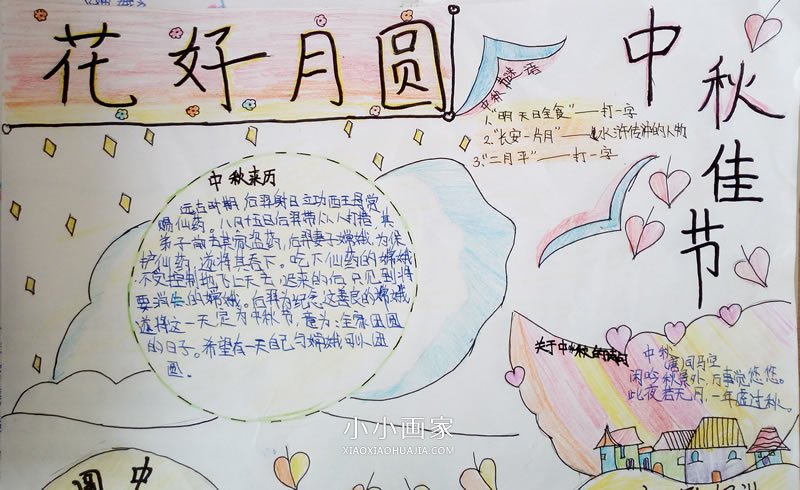 花好月圆
中秋佳节
中秋谜语
1."明天日全食"——打一字
2."长安一片月"——水浒传中的人物
3."二月平"——打一字
中秋来历
远古时期，后羿射日立功西王母赏
赐仙药。八月十五日后羿带人打猎，其
弟子前去其家盗药，后羿妻子嫦娥为保
护仙药，遂将其吞下。吃下仙药的嫦娥
不受控制地飞上天去，迟来的后 只见到将
要消失的嫦娥。后羿为纪念这善良的嫦娥
遂将这一天定为中秋节，意为：全家团圆
的日子。希望有一天自己与嫦娥可以团
圆。
关于中秋的诗句
中秋
司马空
闲吟秋景外，万事觉悠悠。
此夜若无月，一年虚过秋。
圆 中
小小画家
XIAOXIAOHUAJIA.COM